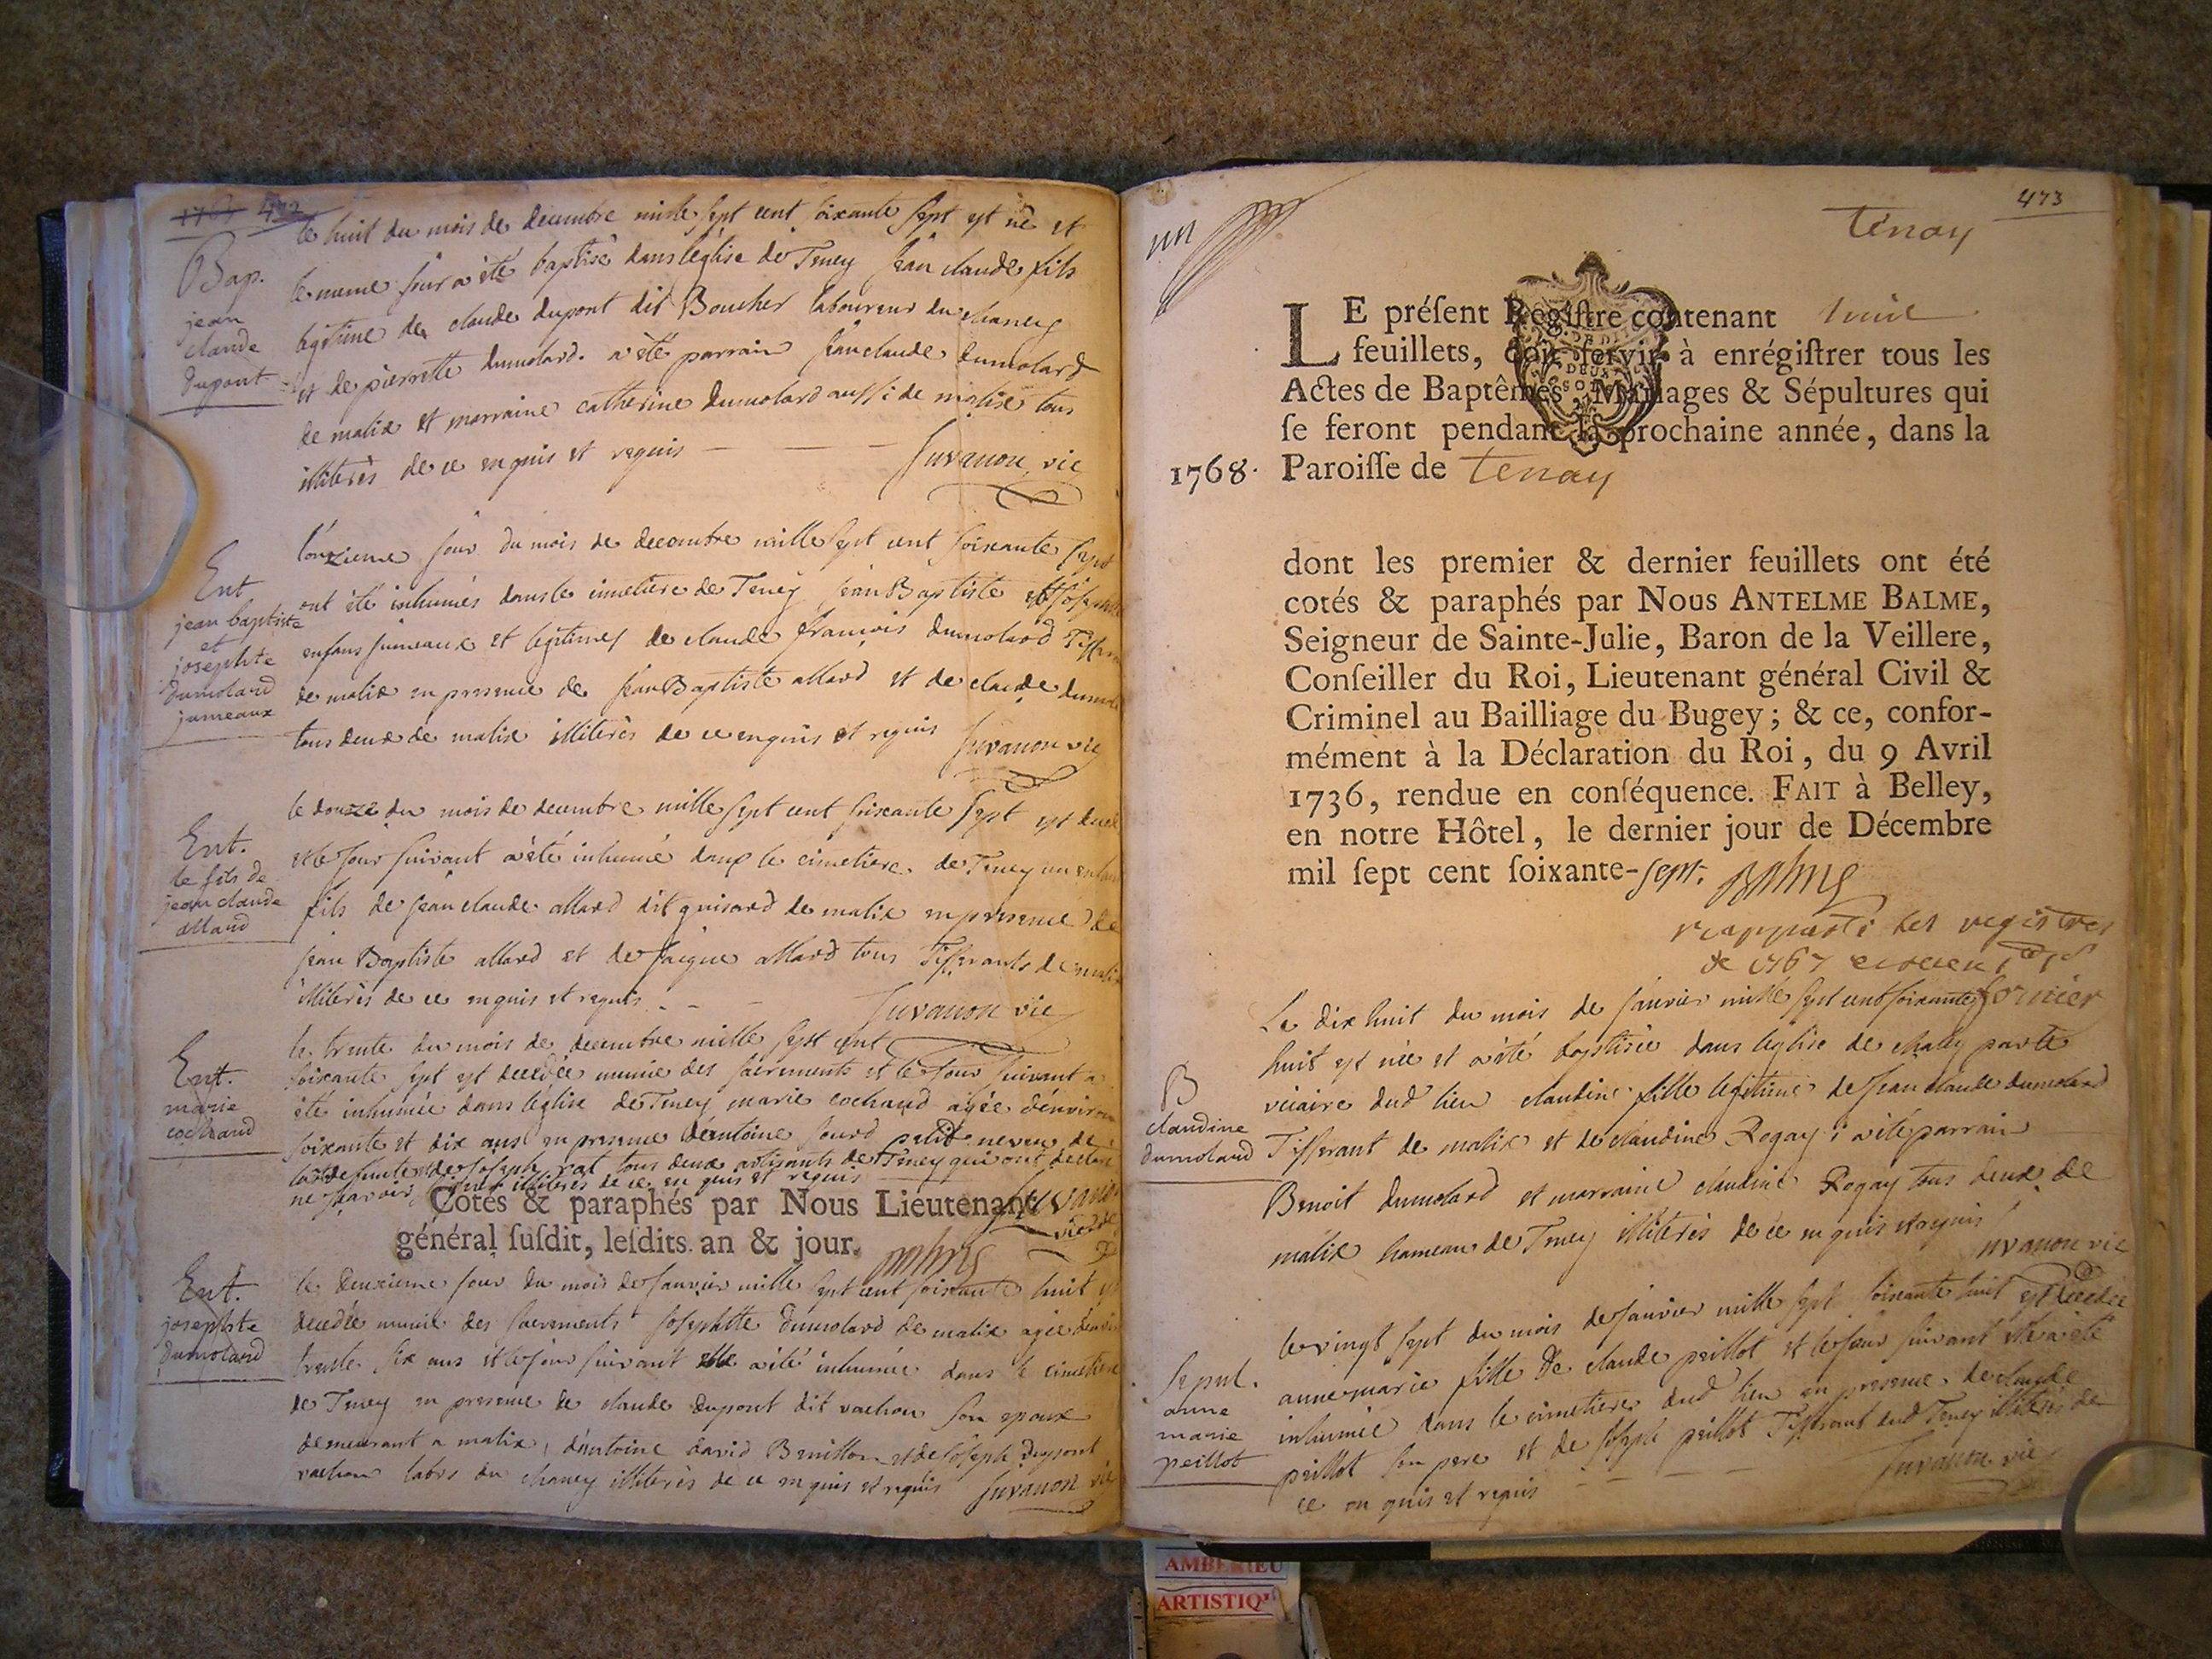 472
le huit du mois de decembre mille sept cent soixante sept est né et
Bap.
jean
claude
dupont
le meme jour a été baptisé dans l'église de Teney jean claude fils
legitime de claude dupont dit Boucher laboureur du chaney
et de pierrette dumolard. a été parrain jean claude dumolard
de malix et marraine catherine dumolard aussi de malix tous
illiterés de ce enquis et requis
Juvanon vic
l'onzieme jour du mois de decembre mille sept cent soixante sept
Ent
jean baptiste
et
josephte
dumolard
jumeaux
ont été inhumés dans le cimetiere de Teney jean Baptiste et
enfans jumeaux et legitimes de claude françois dumolard
de malix en presence de jean Baptiste allard et de claude
tous deux de malix illiterés de ce enquis et requis
Juvanon vic
le douze du mois de decembre mille sept cent soixante sept est
Ent.
le fils de
jean claude
allard
et le jour suivant a été inhumé dans le cimetiere de Teney un
fils de jean claude allard dit guisard de malix en presence de
jean Baptiste allard et de jacque allard tous Tisserants de
illiterés de ce enquis et requis
Juvanon vic
le trente du mois de decembre mille sept cent
Ent.
marie
cochand
soixante sept est decedée munie des sacrements et le jour suivant a
été inhumée dans l'église de Teney marie cochand agée d'environ
soixante et dix ans en presence d'antoine jourd petit neveu de
defunte et de joseph rat tous deux artisants de Teney qui ont
ne sçavoir signer illiterés de ce enquis et requis
Cotés & paraphés par Nous Lieutenant
général susdit, lesdits an & jour.
Ent.
josephte
dumolard
le deuxieme jour du mois de janvier mille sept cent soixante huit
decedée munie des sacrements josephtte dumolard de malix agée
trente six ans et le jour suivant elle a été inhumée dans le cimetiere
de Teney en presence de claude dupont dit vachon son epoux
demeurant a malix, d'antoine david Brunillon et de joseph dupont
vachon labrs du chaney illiterés de ce enquis et requis Juvanon vic
473
tenay
LE présent Regiſtre contenant huit
feuillets, doit ſervir à enrégiſtrer tous les
Actes de Baptêmes, Mariages & Sépultures qui
ſe feront pendant la prochaine année, dans la
1768. Paroiſſe de tenay
dont les premier & dernier feuillets ont été
cotés & paraphés par Nous ANTELME BALME,
Seigneur de Sainte-Julie, Baron de la Veillere,
Conſeiller du Roi, Lieutenant général Civil &
Criminel au Bailliage du Bugey; & ce, confor-
mément à la Déclaration du Roi, du 9 Avril
1736, rendue en conſéquence. FAIT à Belley,
en notre Hôtel, le dernier jour de Décembre
mil ſept cent ſoixante-sept.
rapporté les registres
de 1767
Le dix huit du mois de janvier mille sept cent soixante
huit est née et a été baptisée dans l'église de chaley par le
B
claudine
dumolard
vicaire dud lieu claudine fille legitime de jean claude dumolard
Tisserant de malix et de claudine Rogay; a été parrain
Benoit dumolard et marraine claudine Rogay tous deux de
malix hameau de Teney illiterés de ce enquis et requis
Juvanon vic
le vingt sept du mois de janvier mille sept soixante huit est decedée
Sepul.
anne
marie
peillot
anne marie fille de claude peillot et le jour suivant elle a été
inhumée dans le cimetiere dud lieu en presence de claude
peillot son pere et de joseph peillot Tisserant dud Teney illiterés de
ce enquis et requis
Juvanon vic
AMBERIEU
ARTISTIQ